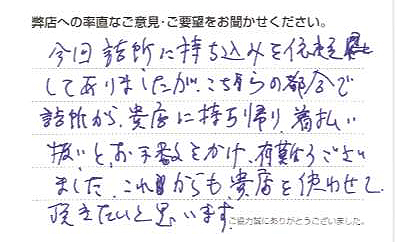 弊店への率直なご意見・ご要望をお聞かせください。
今回 詰所に持ち込みを依頼
してありましたが、こちらの都合で
詰所から、貴店に持ち帰り、着払い
扱いと、お手数をかけ、有難うござい
ました。これからも、貴店を使わせて
頂きたいと思います。
ご協力誠にありがとうございました。